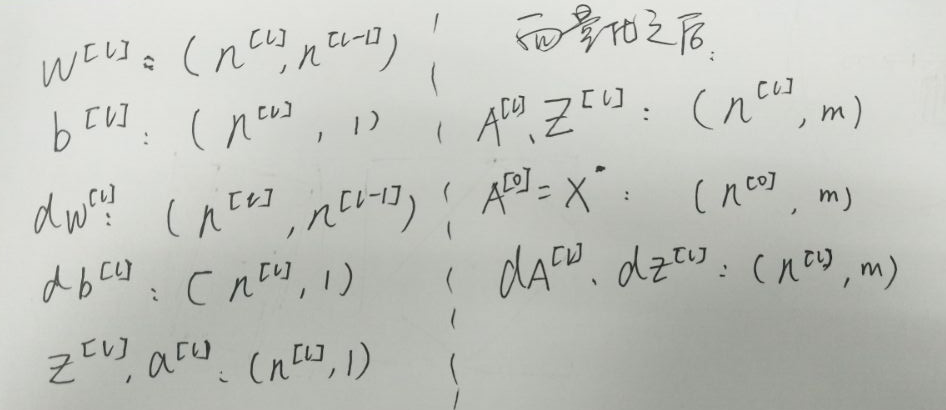 W^[l] : (n^[l], n^[l-1])
b^[l] : (n^[l], 1)
dW^[l] : (n^[l], n^[l-1])
db^[l] : (n^[l], 1)
z^[l], a^[l] : (n^[l], 1)
向量化之后:
A^[l], Z^[l] : (n^[l], m)
A^[0] = X : (n^[0], m)
dA^[l], dZ^[l] : (n^[l], m)